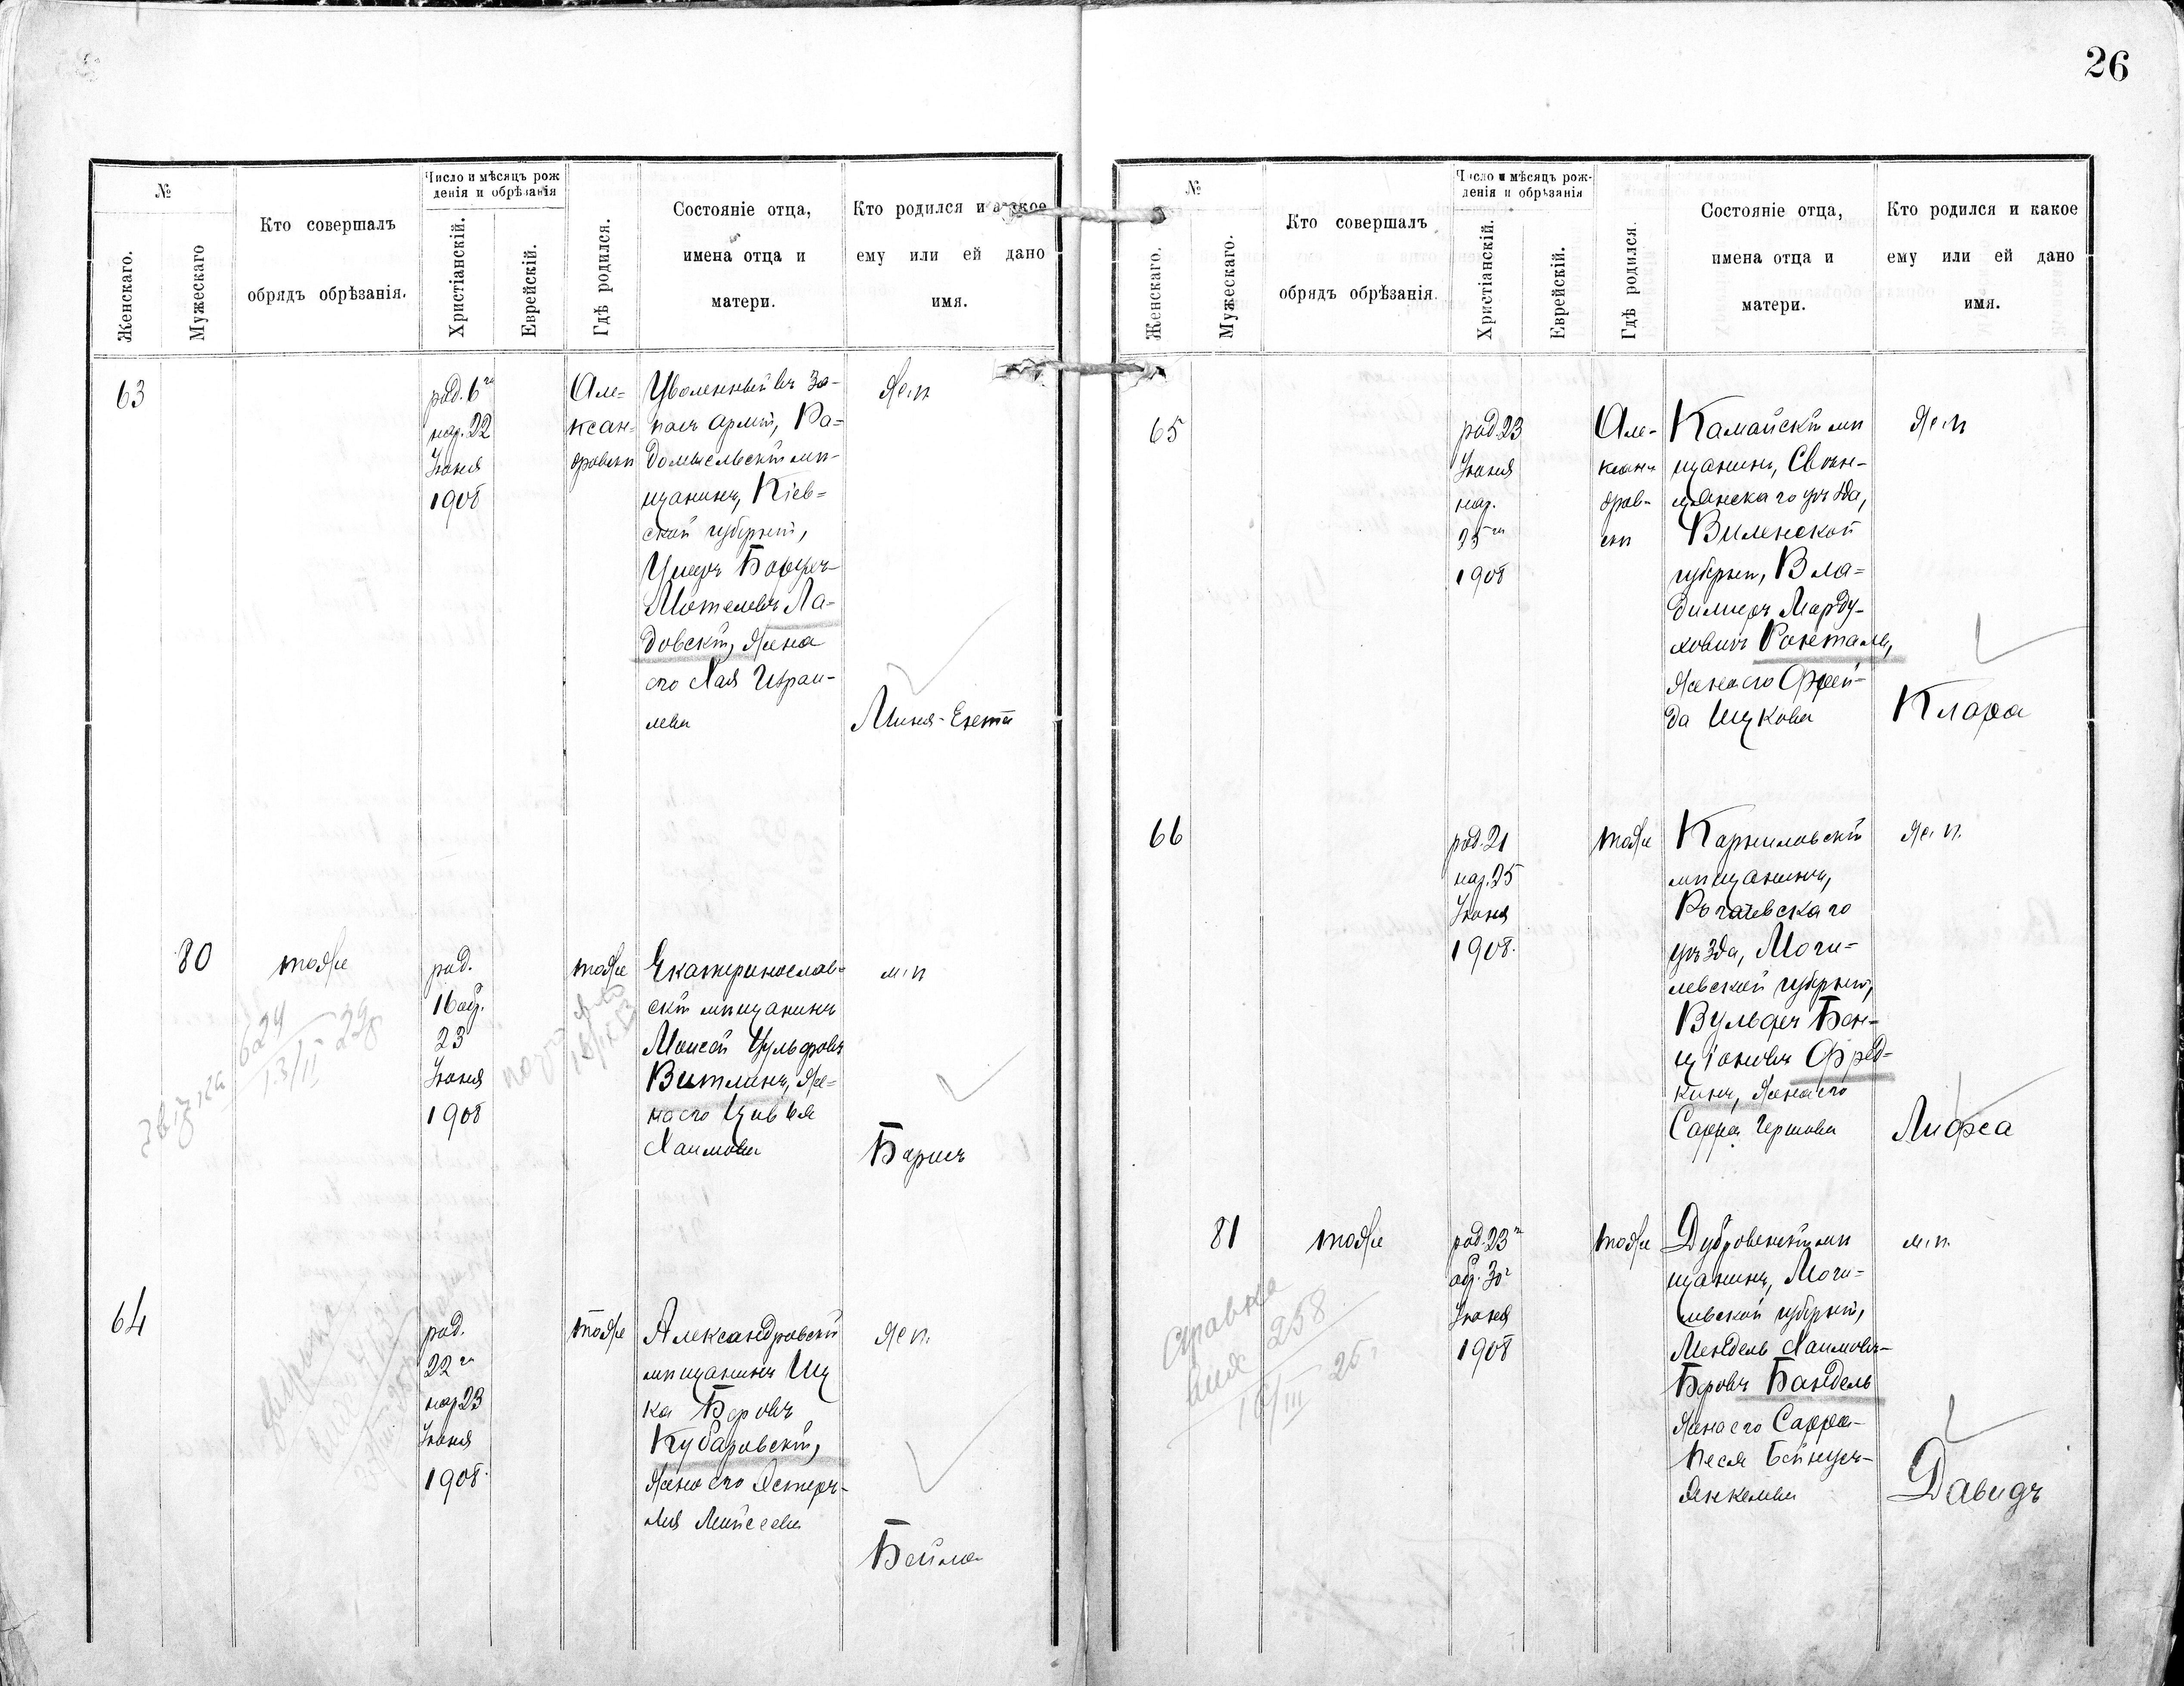 26
№
Женскаго.
Мужескаго
Кто совершалъ
обрядъ обрѣзанія.
Число и мѣсяцъ рож
денія и обрѣзанія
Христіанскій.
Еврейскій.
Гдѣ родился.
Состояніе отца,
имена отца и
матери.
Кто родился и какое
ему или ей дано
имя.
63
род. 6го
нар. 22
Іюня
1908
Але=
ксан=
дровскѣ
Уволенный въ за-
пасъ арміи, Ра=
домысльскій мѣ-
щанинъ, Кіев=
ской губерніи,
Мотелевъ Ла-
довскій, жена
его Хая Израи-
лева
ж. п.
Миня-
80
тоже
род.
16 обр.
23
Іюня
1908
тоже
Екатеринослав=
скій мѣщанинъ
Моисей Вульфовъ
Витлинъ, же=
на его Цивья
Хаимова
м. п.
Борисъ
624
13/II 29
64
род.
22го
нар 23
Іюня
1908.
тоже
Александровскій
мѣщанинъ Иц
ка Беровъ
Кубаровскій,
жена его Эстеръ-
Лея Мойсеева
ж п.
Бейла
№
Женскаго.
Мужескаго.
Кто совершалъ
обрядъ обрѣзанія.
Число и мѣсяцъ рож-
денія и обрѣзанія
Христіанскій.
Еврейскій.
Гдѣ родился.
Состояніе отца,
имена отца и
матери.
Кто родился и какое
ему или ей дано
имя.
65
род. 23
Іюня
нар.
25го
1908
Але-
ксан-
дров-
скѣ
Камайскій мѣ
щанинъ, Свѣн-
цянскаго уѣзда,
Виленской
губерніи, Вла=
димиръ Марду-
ховичъ
жена его Фрей-
да Ицкова
ж. п.
Клара
66
род. 21
нар. 25
Іюня
1908.
тоже
Карпиловскій
мѣщанинъ,
Рогачевскаго
уѣзда, Моги=
левской губерніи,
Вульфъ Бен-
ціоновъ Фрад=
кинъ, жена его
Сарра Гершова
ж. п.
Лифса
81
тоже
род. 23го
обр. 30г
Іюня
1908
тоже
Дубровенскій мѣ
щанинъ, Моги=
левской губерніи,
Мендель Хаимовъ-
Беровъ Бандель
жена его Сарра-
Песя Бейнуш-
Янкелева
м. п.
Давидъ
справка
258
16/III 25 г